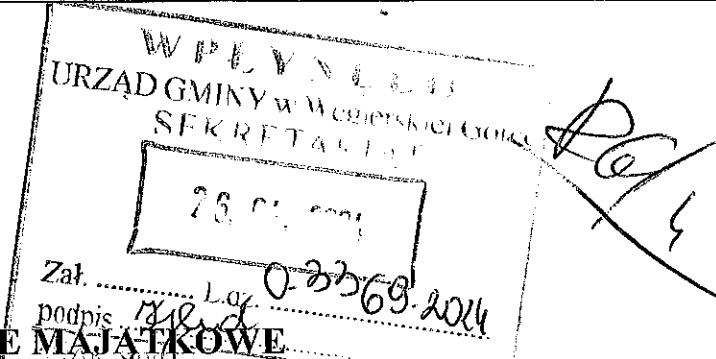 WPŁYNĘŁO
URZĄD GMINY w Węgierskiej Górce
SEKRETARIAT
26.
Zał. ........... L.dz. 0-3369.2024
podpis
E MAJĄTKOWE